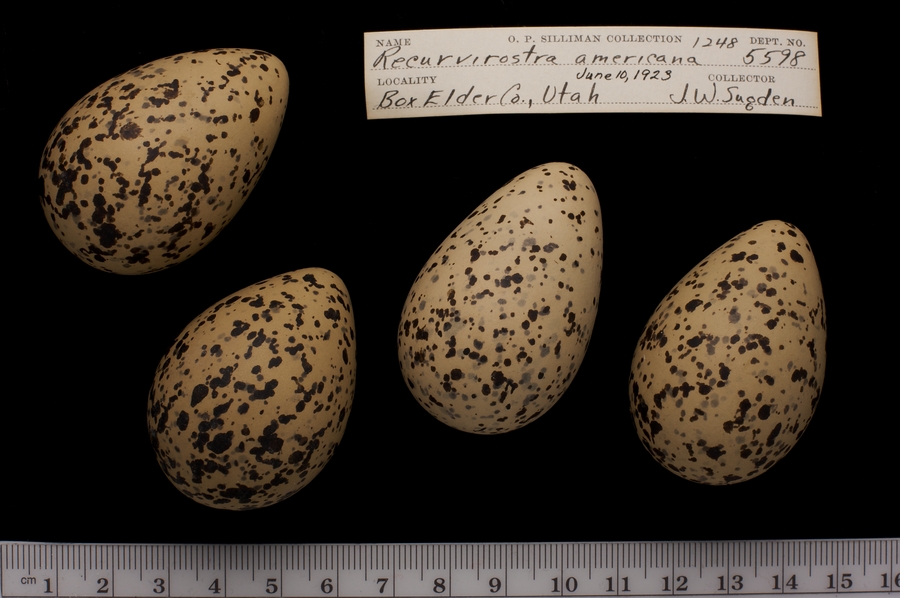 NAME O. P. SILLIMAN COLLECTION 1248 DEPT. NO.
Recurvirostra americana 5598
LOCALITY June 10, 1923 COLLECTOR
Box Elder Co., Utah J. W. Sugden
cm 1 2 3 4 5 6 7 8 9 10 11 12 13 14 15 16